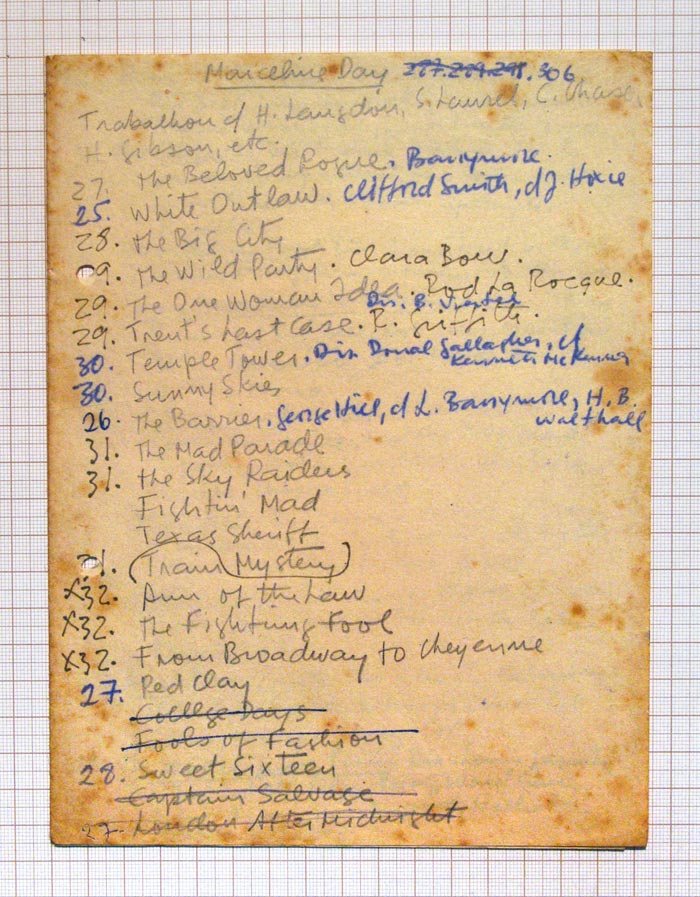 Marceline Day 287.289.298.306
Trabalhou c/ H. Langdon, S. Laurel, C. Chase,
H. Gibson, etc.
27. the Beloved Rogue. Barrymore.
25. White Outlaw. Clifford Smith, c/ J. Hoxie
28. the Big City
29. the Wild Party. Clara Bow.
29. The One Woman Idea. Rod La Rocque.
29. Trent's Last Case. R. Griffith.
30. Temple Tower. Dir. Donal Gallagher, c/
Kenneth McKenna
30. Sunny Skies
26. The Barrier. George Hill, c/ L. Barrymore, H. B.
Walthall
31. The Mad Parade
31. the Sky Raiders
Fightin' Mad
Texas Sheriff
31. (Train Mystery)
x32. Arm of the Law
x32. The Fighting Fool
x32. From Broadway to Cheyenne
27. Red Clay
College Days
Fools of Fashion
28. Sweet Sixteen
Captain Salvage
27. London After Midnight